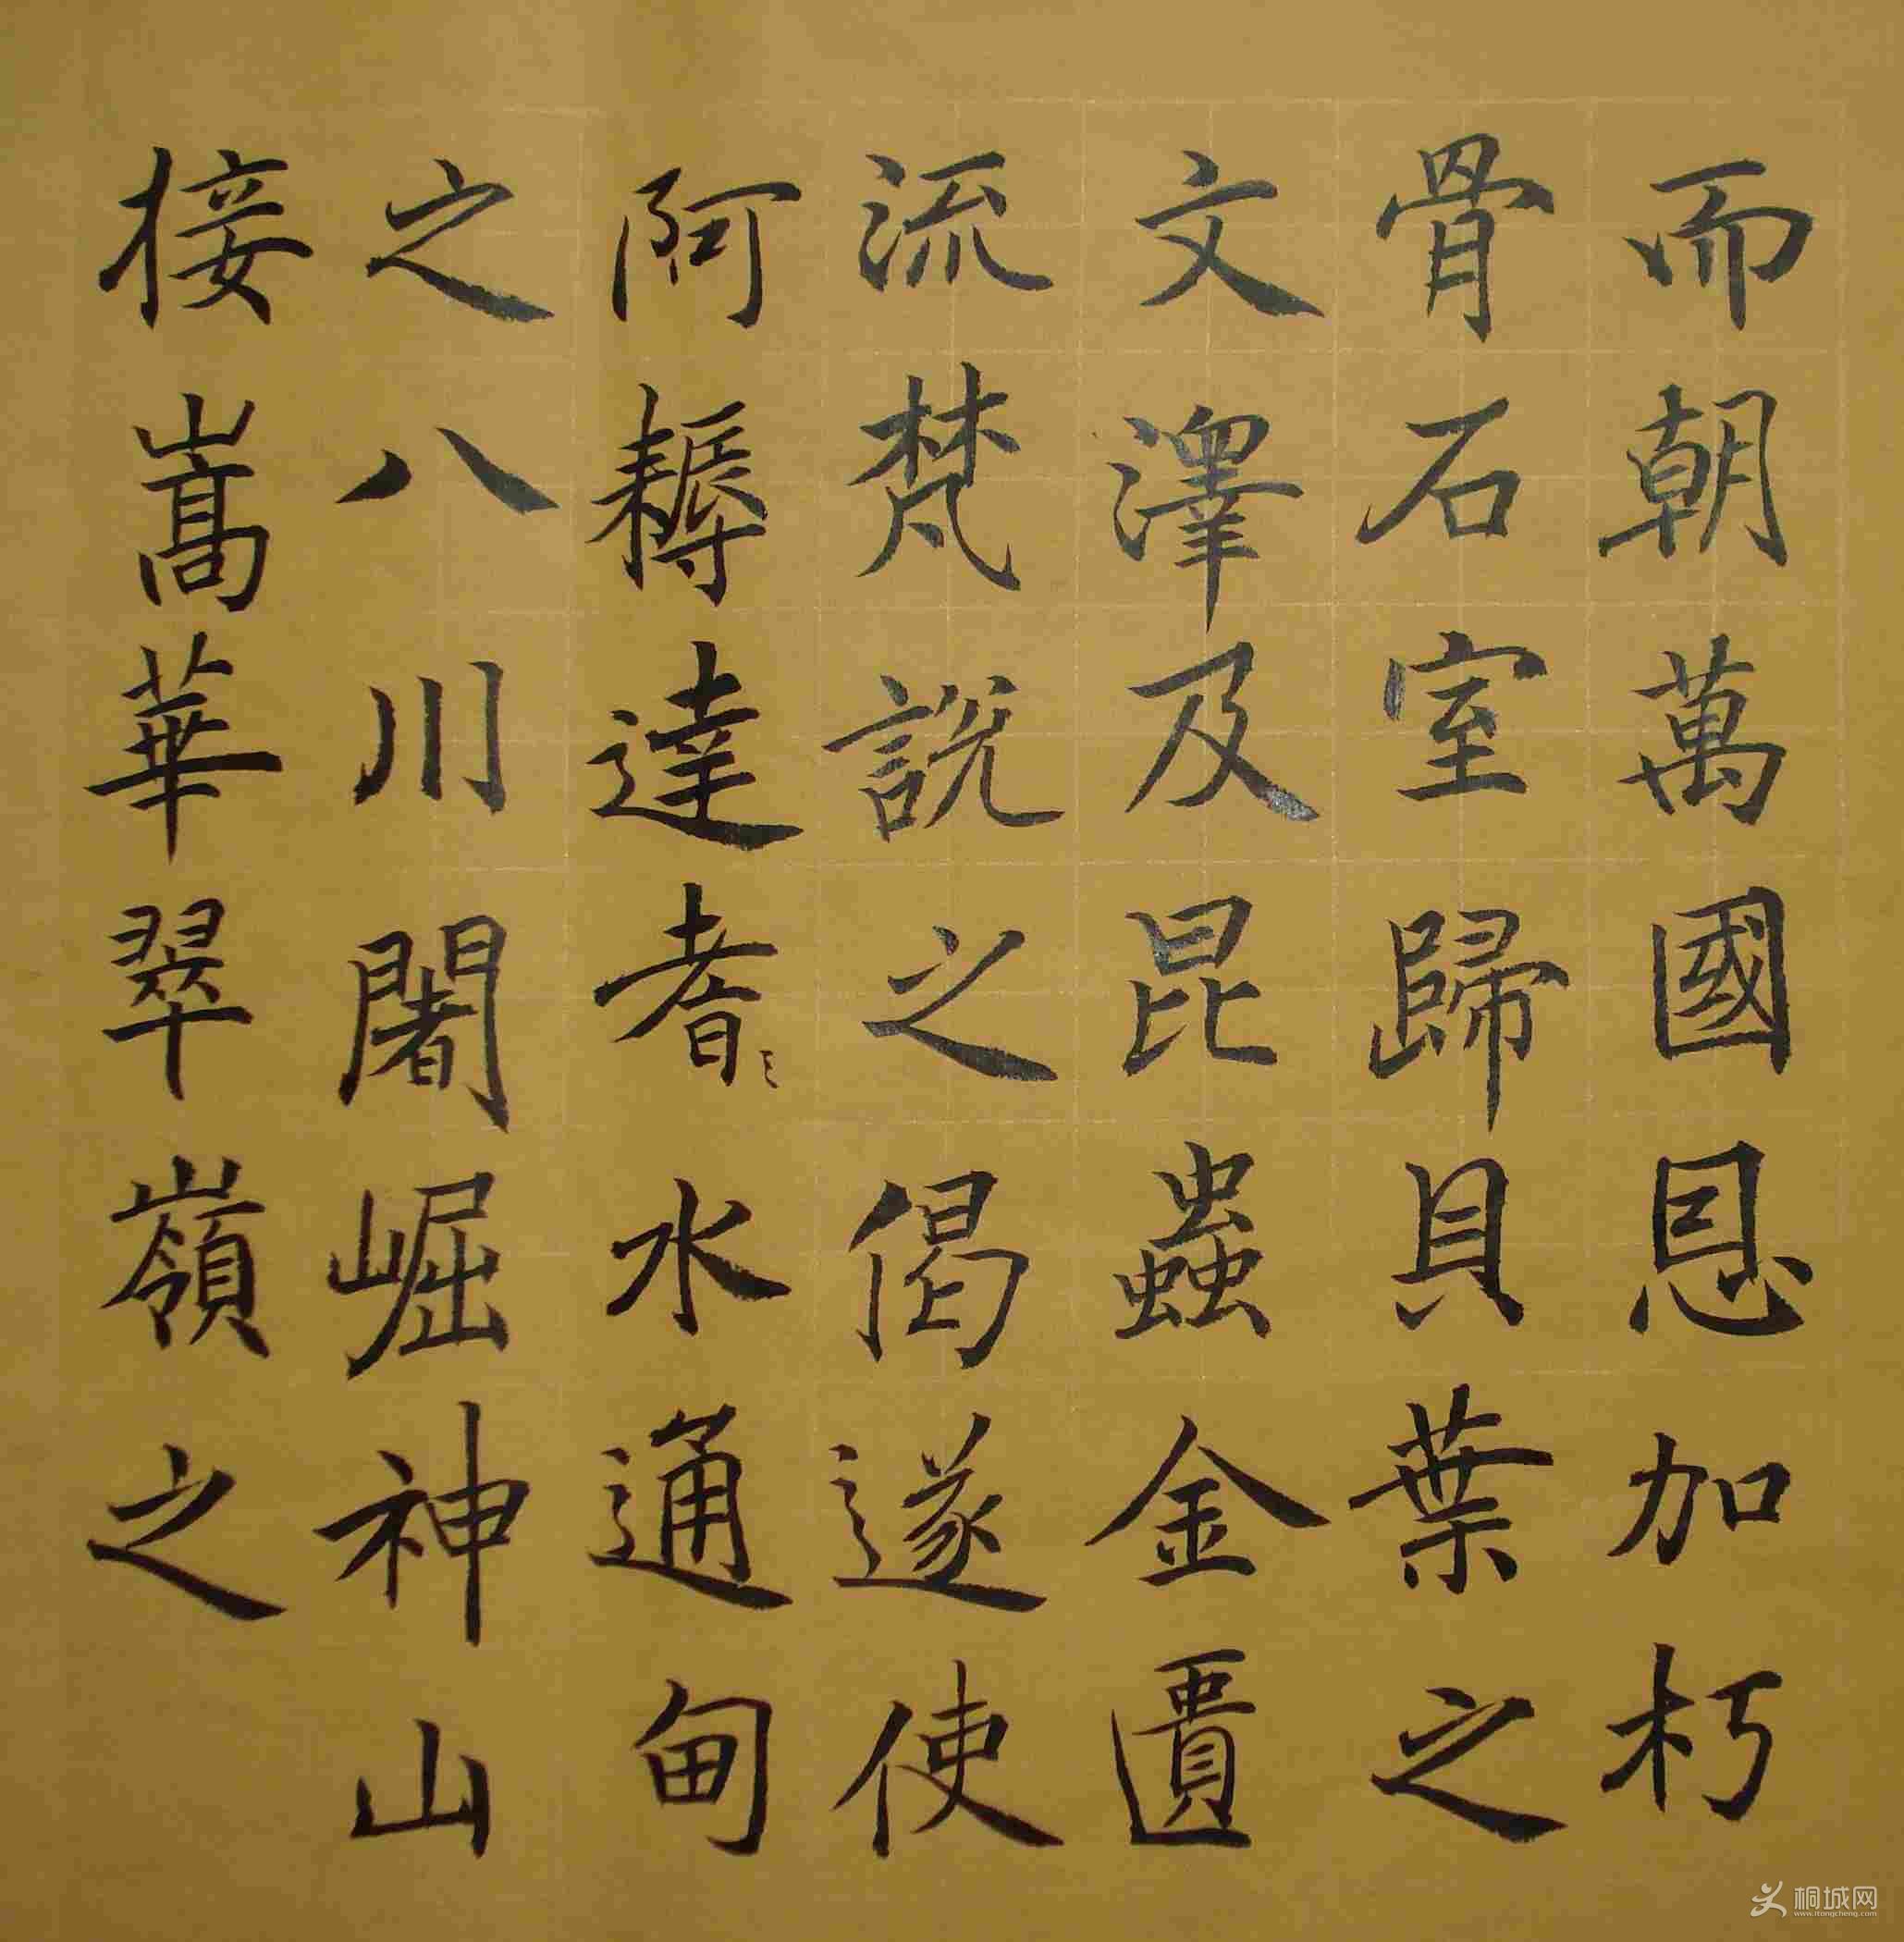 而朝萬國恩加朽
骨石室歸貝葉之
文澤及昆蟲金匱
流梵說之偈遂使
阿耨達者水通甸
之八川闍崛神山
接嵩華翠嶺之
桐城网
www.itongcheng.com